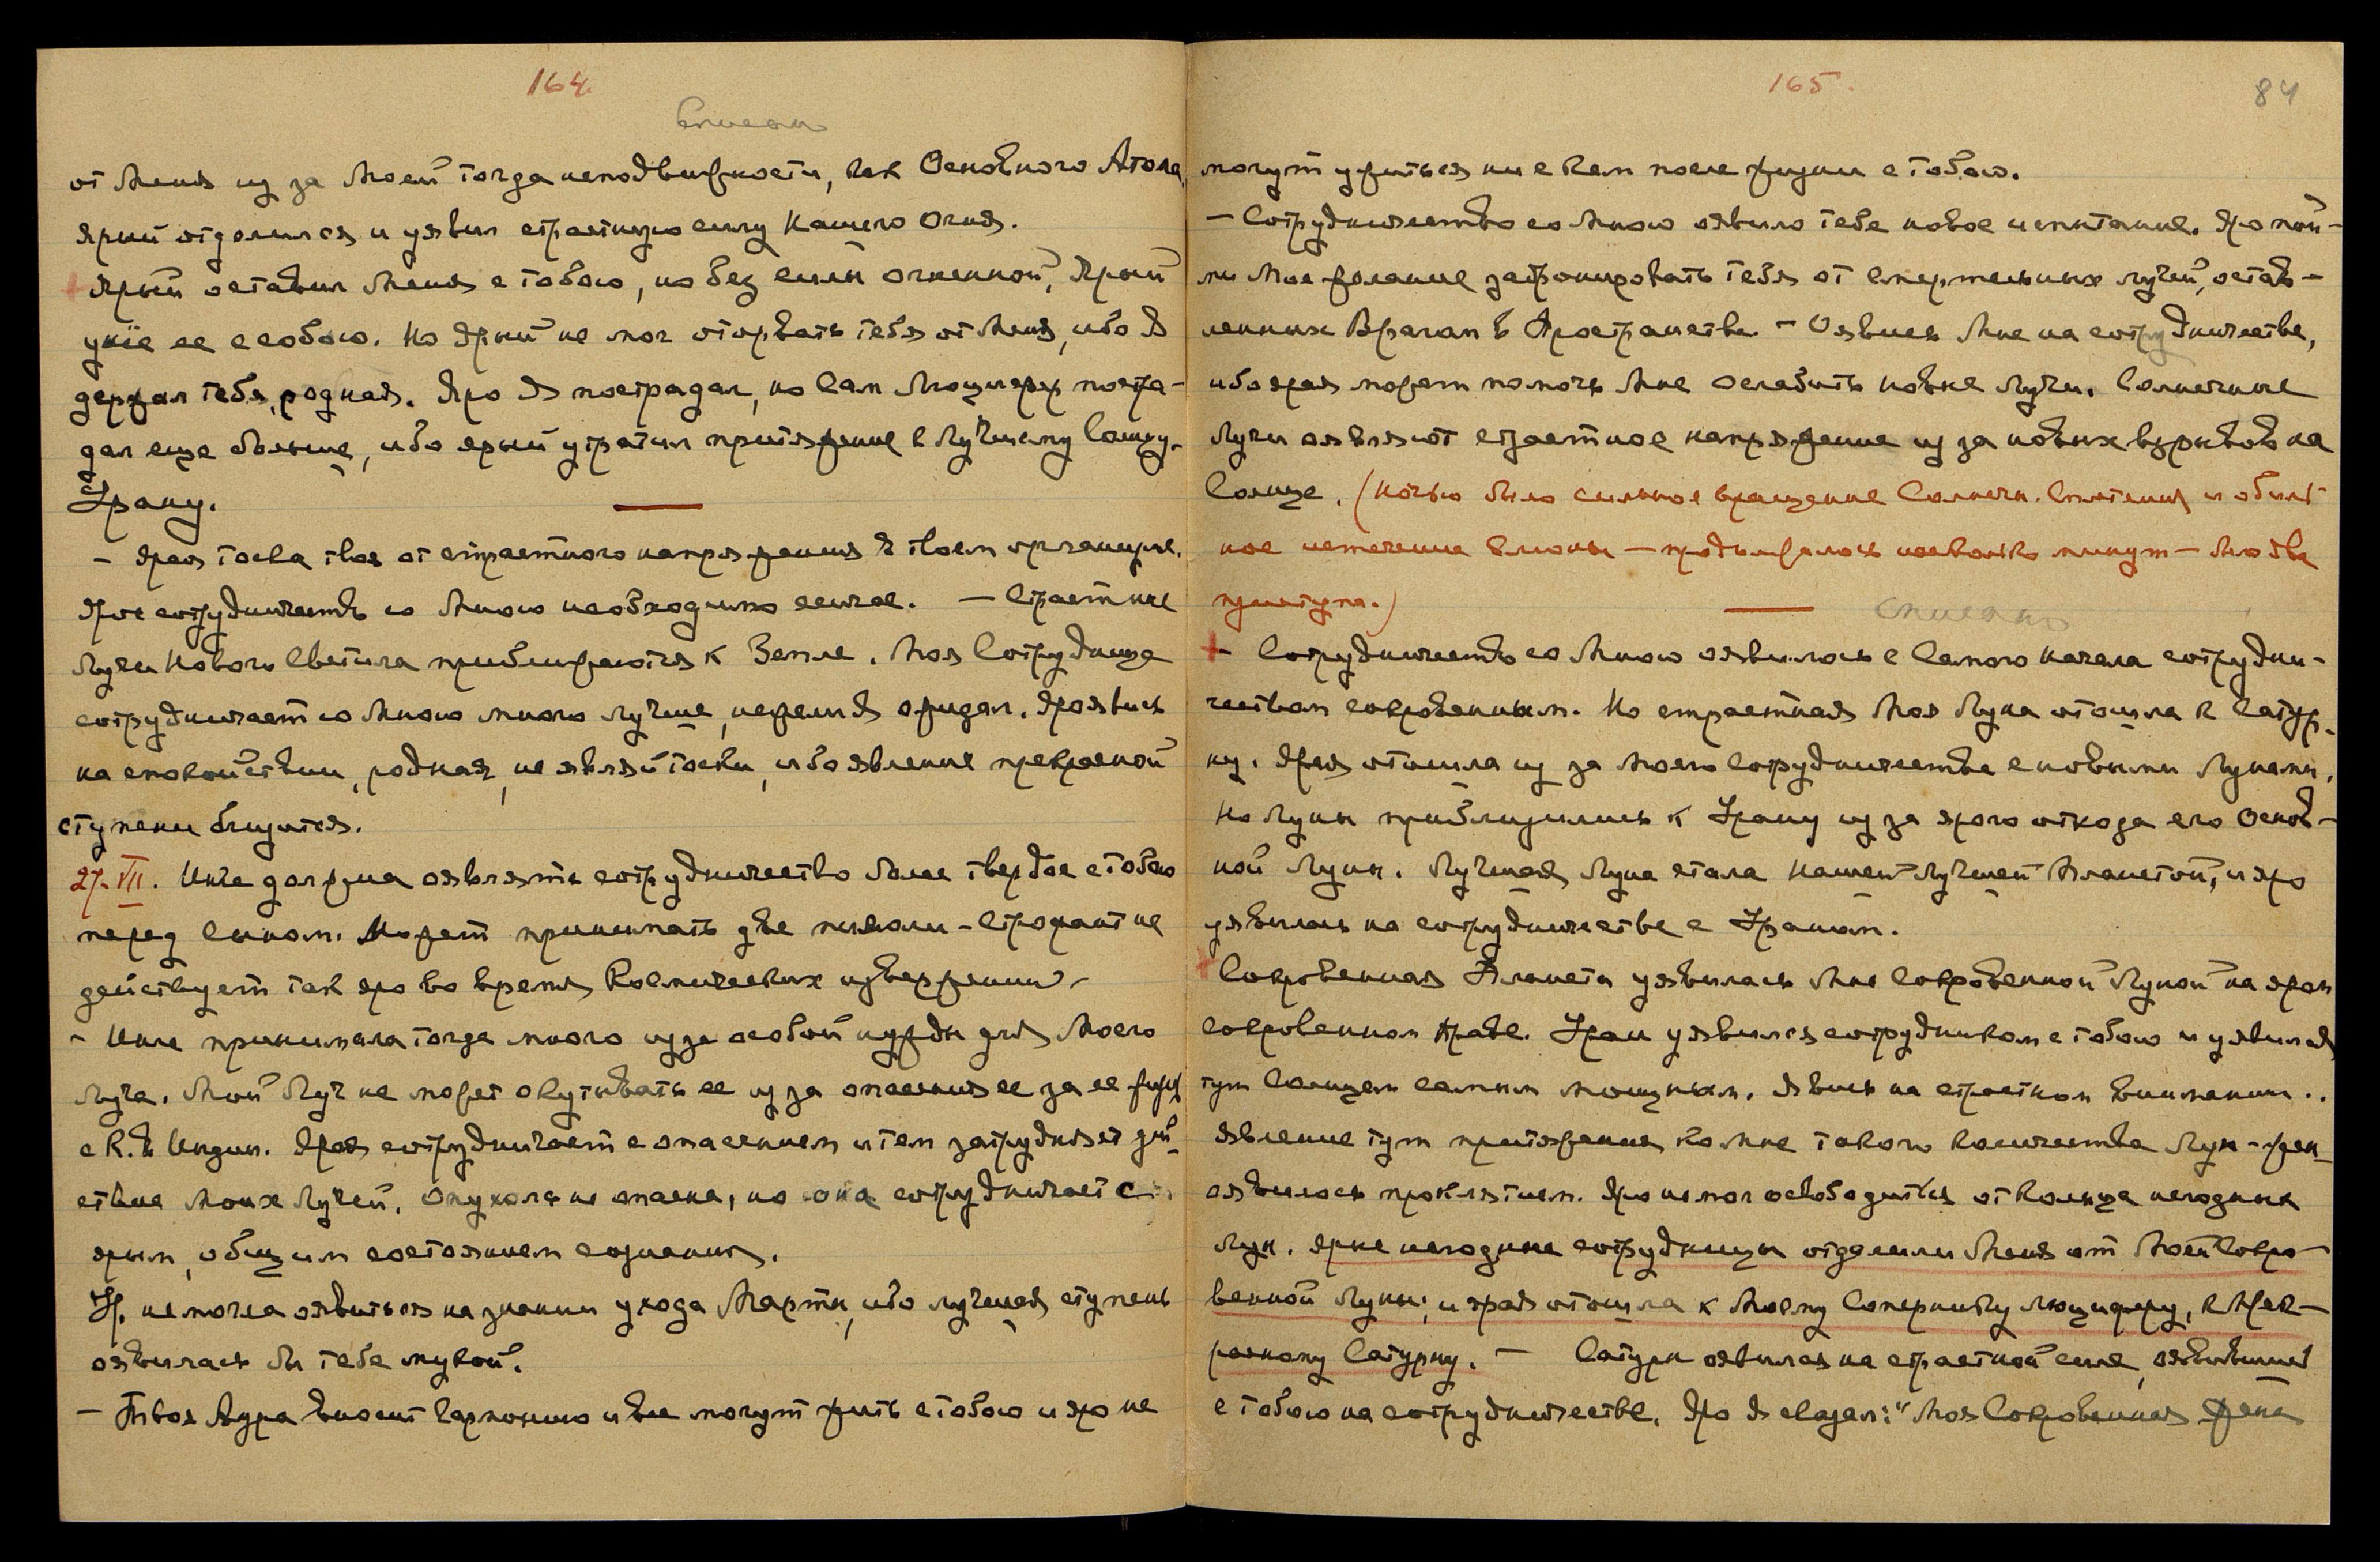 164.
списан
от Меня из за Моей тогда неподвижности, как Основного Атома,
Ярый отделился и уявил страстную силу Нашего Огня.
Ярый оставил Меня с тобою, но без силы огненной, Ярый
унес ее с собою. Но Ярый не мог оторвать тебя от Меня, ибо Я
держал тебя, родная. Яро Я пострадал, но Сам Люцифер постра-
дал еще больше, ибо ярый утратил притяжение к Лучшему Солнцу-
Урану.
– Ярая тоска твоя от страстного напряжения в твоем организме.
Ярое сотрудничество со Мною необходимо сейчас. – Страстные
Лучи Нового Светила приближаются к Земле. Моя Сотрудница
сотрудничает со Мною много лучше, нежели Я ожидал. Яро явись
на спокойствии, родная, не являй тоски, ибо явление прекрасной
ступени близится.
27. VII. Инге должна оявлять сотрудничество более твердое с тобою
перед сыном. Может принимать две пилюли – Строфант не
действует так яро во время Космических извержений.
– Инге принимала тогда много из за особой нужды для Моего
Луча. Мой Луч не может окутывать ее из за опасения ее за ее жизнь
с К. в Индии. Ярая сотрудничает с опасением и тем затрудняет дей-
ствие Моих Лучей. Опухоль не опасна, но она сотрудничает с
ярым, общим состоянием сознания.
Ур. не могла оявиться на знании ухода Марты, ибо лучшая ступень
оявилась бы тебе мукой.
– Твоя Аура вносит гармонию и все могут жить с тобою и яро не
165.
84
могут ужиться ни с кем после жизни с тобою.
– Сотрудничество со Мною оявило тебе новое испытание. Яро пой-
ми Мое желание забронировать тебя от смертельных лучей, остав-
ленных Врагом в Пространстве. – Оявись Мне на сотрудничестве,
ибо ярая может помочь Мне ослабить новые Лучи. Солнечные
Лучи оявляют страстное напряжение из за новых взрывов на
Солнце. (Ночью было сильное вращение Солнечн. Сплетения и обиль-
ное истечение слюны – продолжалось несколько минут – было два
приступа.)
списано
– Сотрудничество со Мною оявилось с Самого начала сотрудни-
чеством сокровенным. Но страстная Моя Луна отошла к Сатур-
ну. Ярая отошла из за Моего Сотрудничества с новыми Лунами.
Но Луны приблизились к Урану из за ярого отхода его Основ-
ной Луны. Лучшая Луна стала Нашей Лучшей Планетой, и яро
уявилась на сотрудничестве с Ураном.
Сокровенная Планета уявилась Мне Сокровенной Луной на яром
сокровенном Праве. Уран уявился сотрудником с тобою и уявился
тут Солнцем самым мощным. Явись на страстном внимании..
Явление тут притяжения ко Мне такого количества Лун – жен
оявилось проклятием. Яро не мог освободиться от Кольца негодных
Лун. Ярые негодные сотрудницы отделили Меня от Моей Сокро-
венной Луны; и ярая отошла к Моему Сопернику Люциферу, к Прек-
расному Сатурну. – Сатурн оявился на страстной силе, оявившись
с тобою на сотрудничестве. Яро Я сказал: "Моя Сокровенная Жена